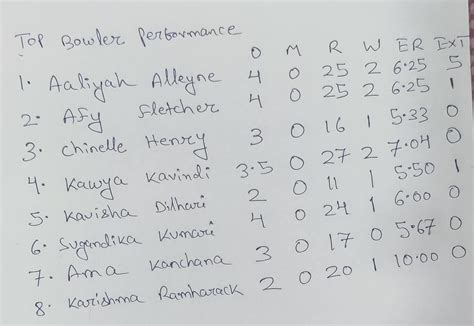 Top Bowler Performance
O M R W ER EXT
1. Aaliyah Alleyne 4 0 25 2 6.25 5
2. Afy Fletcher 4 0 25 2 6.25 1
3. Chinelle Henry 3 0 16 1 5.33 0
4. Kawya Kavindi 3.5 0 27 2 7.04 0
5. Kavisha Dilhari 2 0 11 1 5.50 1
6. Sugandika Kumari 4 0 24 1 6.00 0
7. Ama Kanchana 3 0 17 0 5.67 0
8. Karishma Ramharack 2 0 20 1 10.00 0